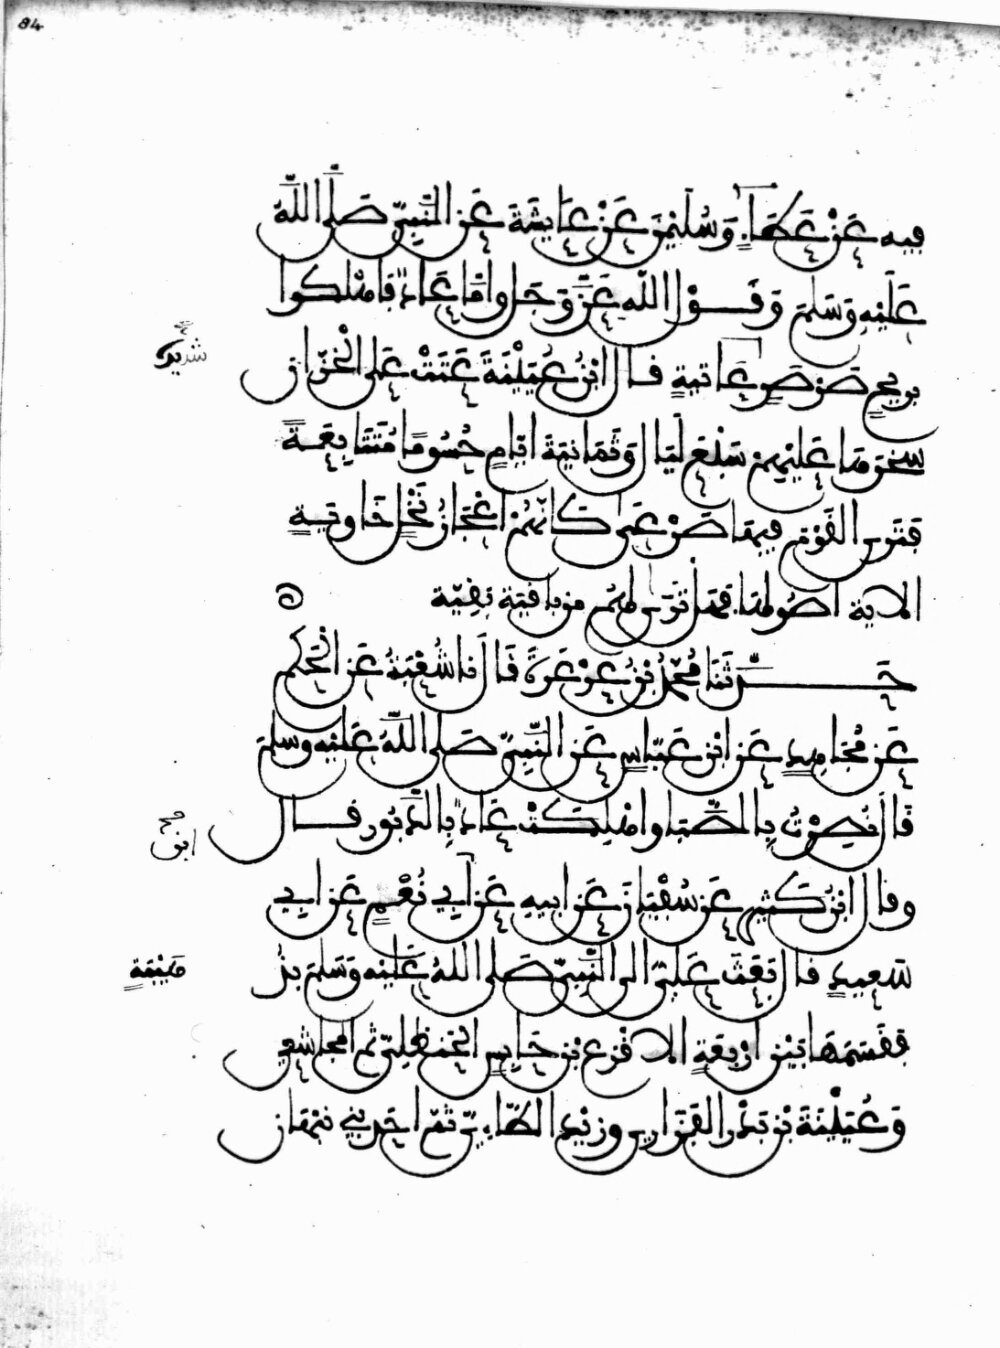 84
فيه عَنْ عَطَاءٍ وَسُلَيْمٰنَ عَنْ عَايِشَةَ عَنِ النَّبِيِّ صَلَّى اللَّهُ
عَلَيْهِ وَسَلَّمَ وَقَوْلِ اللَّهِ عَزَّ وَجَلَّ وَأَمَّا عَادٌ فَأُهْلِكُوا
بِرِيحٍ صَرْصَرٍ عَاتِيَةٍ قَالَ ابْنُ عُيَيْنَةَ عَتَتْ عَلَى الْخُزَّانِ
شديدة
سَخَّرَهَا عَلَيْهِمْ سَبْعَ لَيَالٍ وَثَمَانِيَةَ أَيَّامٍ حُسُومًا مُتَتَابِعَةً
فَتَرَى الْقَوْمَ فِيهَا صَرْعَى كَأَنَّهُمْ أَعْجَازُ نَخْلٍ خَاوِيَةٍ
الاية أُصُولُهَا فَهَلْ تَرَى لَهُمْ مِنْ بَاقِيَةٍ بَقِيَّةٍ
حَدَّثَنَا مُحَمَّدُ بْنُ عَرْعَرَةَ قَالَ نا شُعْبَةُ عَنِ الْحَكَمِ
عَنْ مُجَاهِدٍ عَنِ ابْنِ عَبَّاسٍ عَنِ النَّبِيِّ صَلَّى اللَّهُ عَلَيْهِ وَسَلَّمَ
قَالَ نُصِرْتُ بِالصَّبَا وَأُهْلِكَتْ عَادٌ بِالدَّبُورِ قَالَ
ابن صح
وقال ابْنُ كَثِيرٍ عَنْ سُفْيَانَ عَنْ أَبِيهِ عَنْ أَبِي نُعْمٍ عَنْ أَبِي
سَعِيدٍ قَالَ بَعَثَ عَلِيٌّ إِلَى النَّبِيِّ صَلَّى اللَّهُ عَلَيْهِ وَسَلَّمَ بِذُ
هَيْبَةٍ
فَقَسَمَهَا بَيْنَ أَرْبَعَةٍ الاقْرَعِ بْنِ حَابِسٍ الْحَنْظَلِيِّ ثُمَّ الْمُجَاشِعِيِّ
وَعُيَيْنَةَ بْنِ بَدْرٍ الْفَزَارِيِّ وَزَيْدٍ الطَّاءِيِّ ثُمَّ أَحَدِ بَنِي نَبْهَانَ